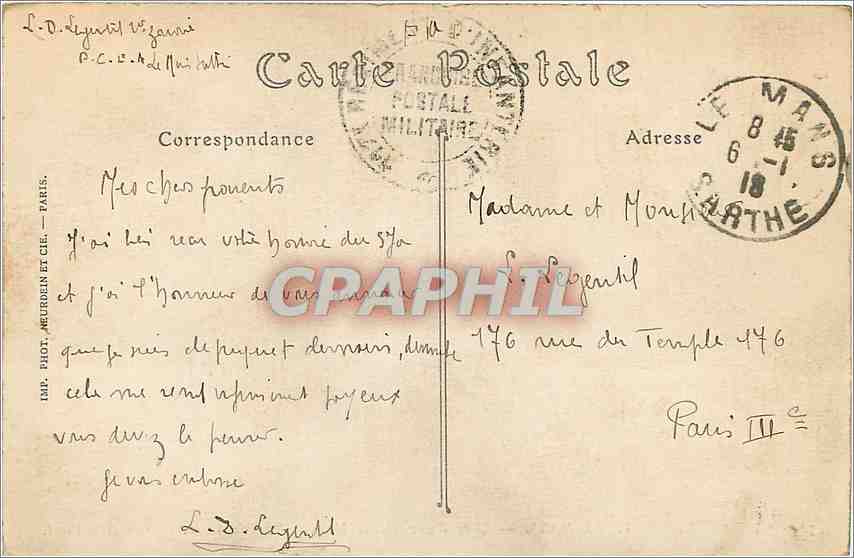 L. D. Legentil
P. C. E. A Le Mans Sarthe
F M
Carte Postale
D'INFANTERIE
FRANCHISE
POSTALE
MILITAIRE
LE MANS
8 45
6 -1
18
SARTHE
Correspondance
Adresse
Mes chers parents
J'ai bien reçu votre du
et j'ai l'honneur de vous annoncer
que je suis de piquet demain, dimanche
cela me rend joyeux
vous devez le penser.
Je vous embrasse
L. D. Legentil
Madame et Monsieur
L. Legentil
176 rue du Temple 176
Paris IIIe
IMP. PHOT. NEURDEIN ET CIE. — PARIS.
CPAPHIL